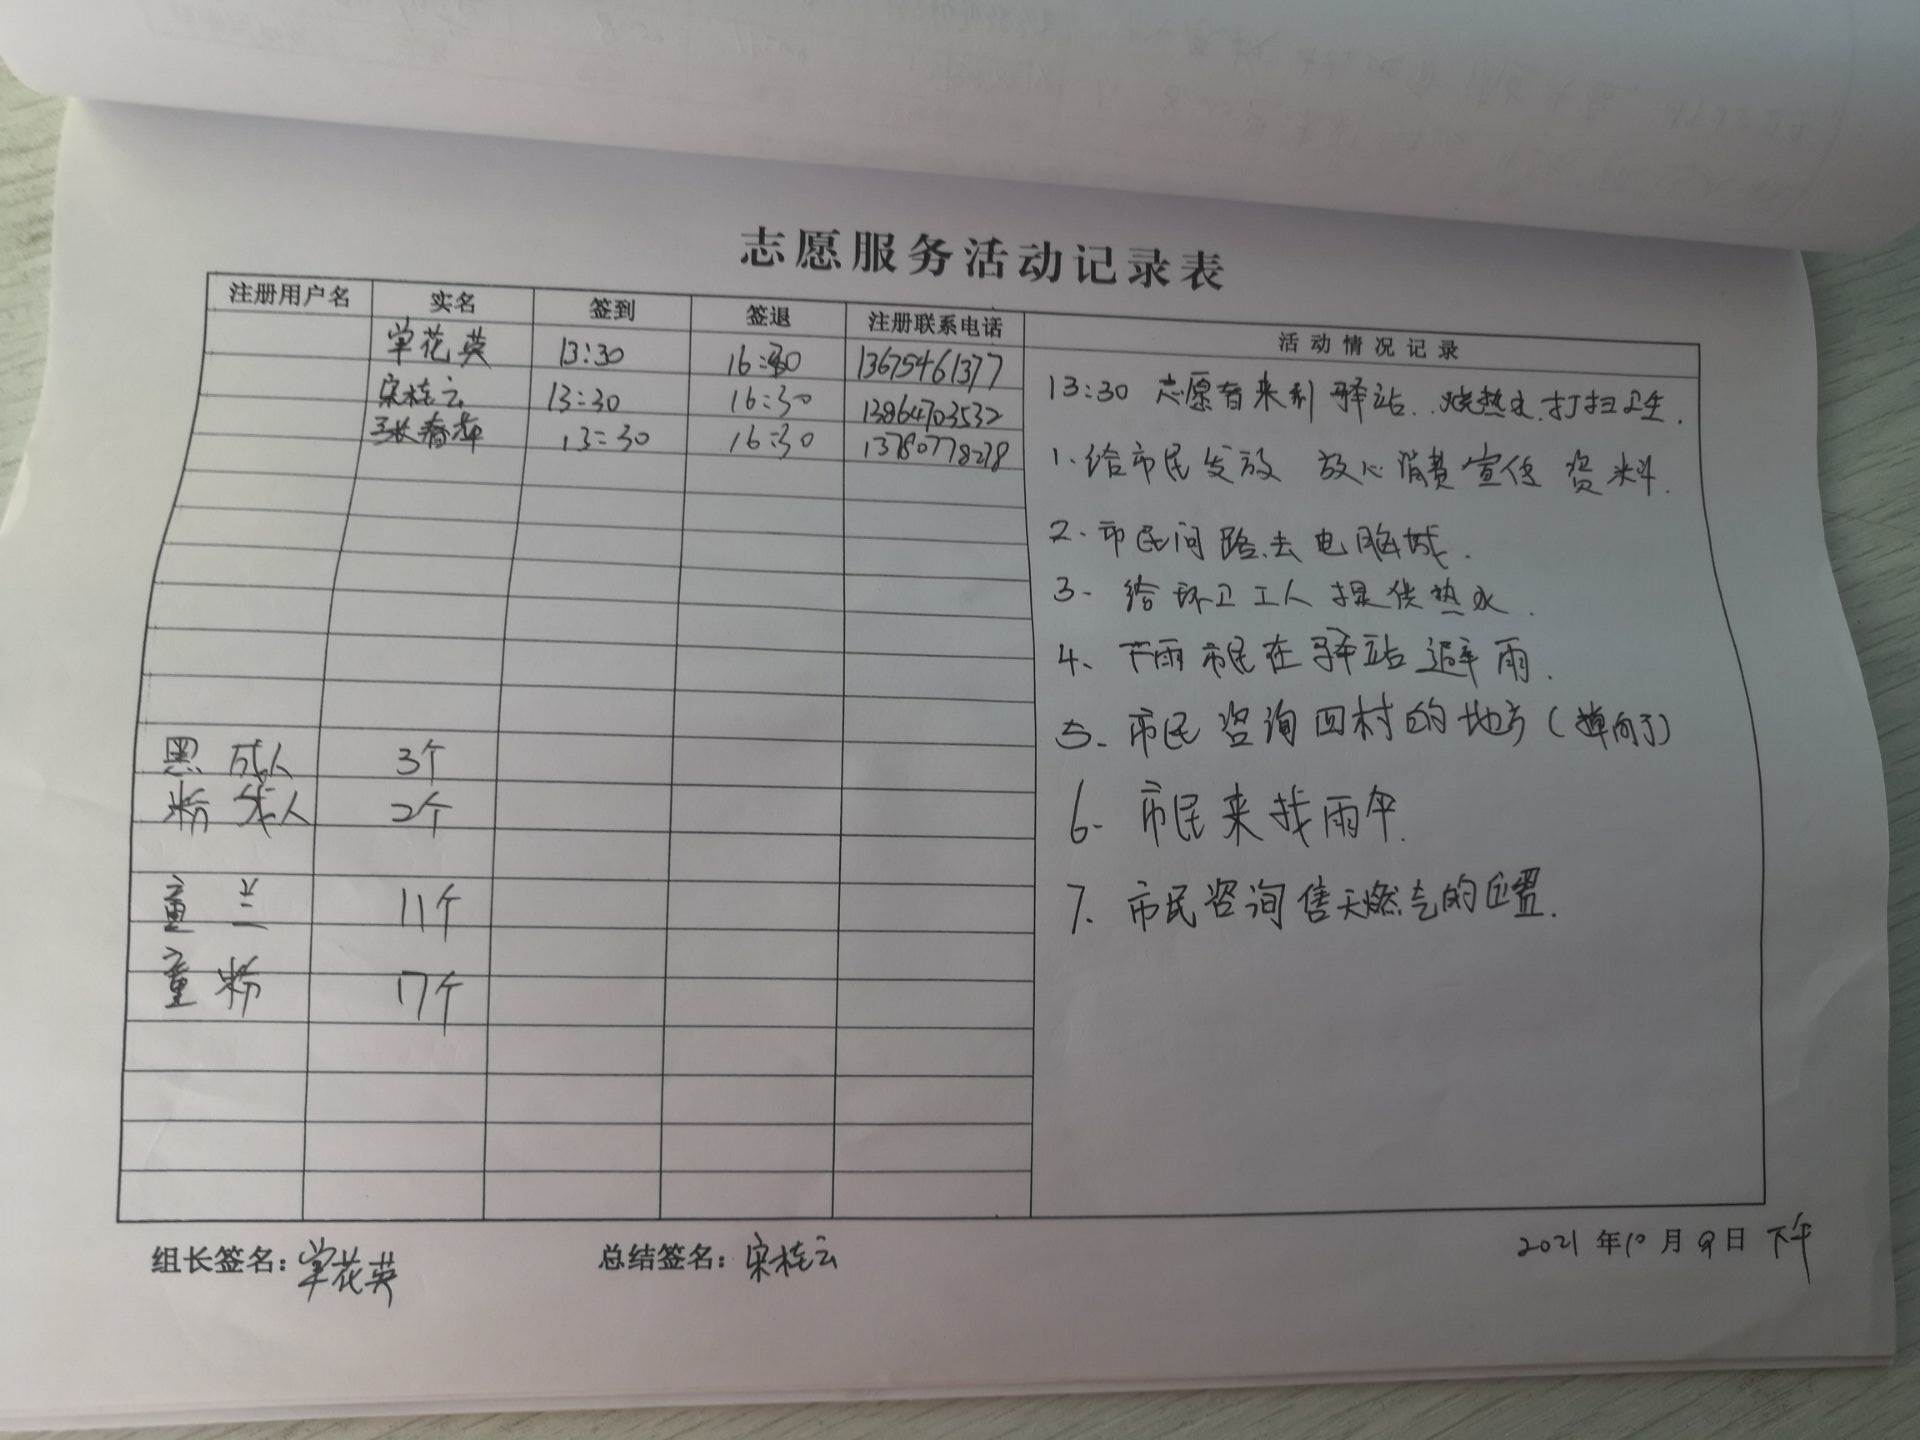 志愿服务活动记录表
注册用户名 实名 签到 签退 注册联系电话 活动情况记录
单花英 13:30 16:30 13675461377
宋桂云 13:30 16:30 13864703532
张春华 13:30 16:30 13780778278
13:30 志愿者来到驿站..烧热水.打扫卫生.
1.给市民发放 放心消费宣传资料.
2.市民问路.去电脑城.
3.给环卫工人提供热水.
4、下雨市民在驿站避雨.
5.市民咨询四村的地方(
6.市民来找雨伞.
7.市民咨询售天燃气的位置.
黑 成人 3个
粉 成人 2个
童 兰 11个
童 粉 17个
组长签名:单花英 总结签名:宋桂云 2021年10月9日下午